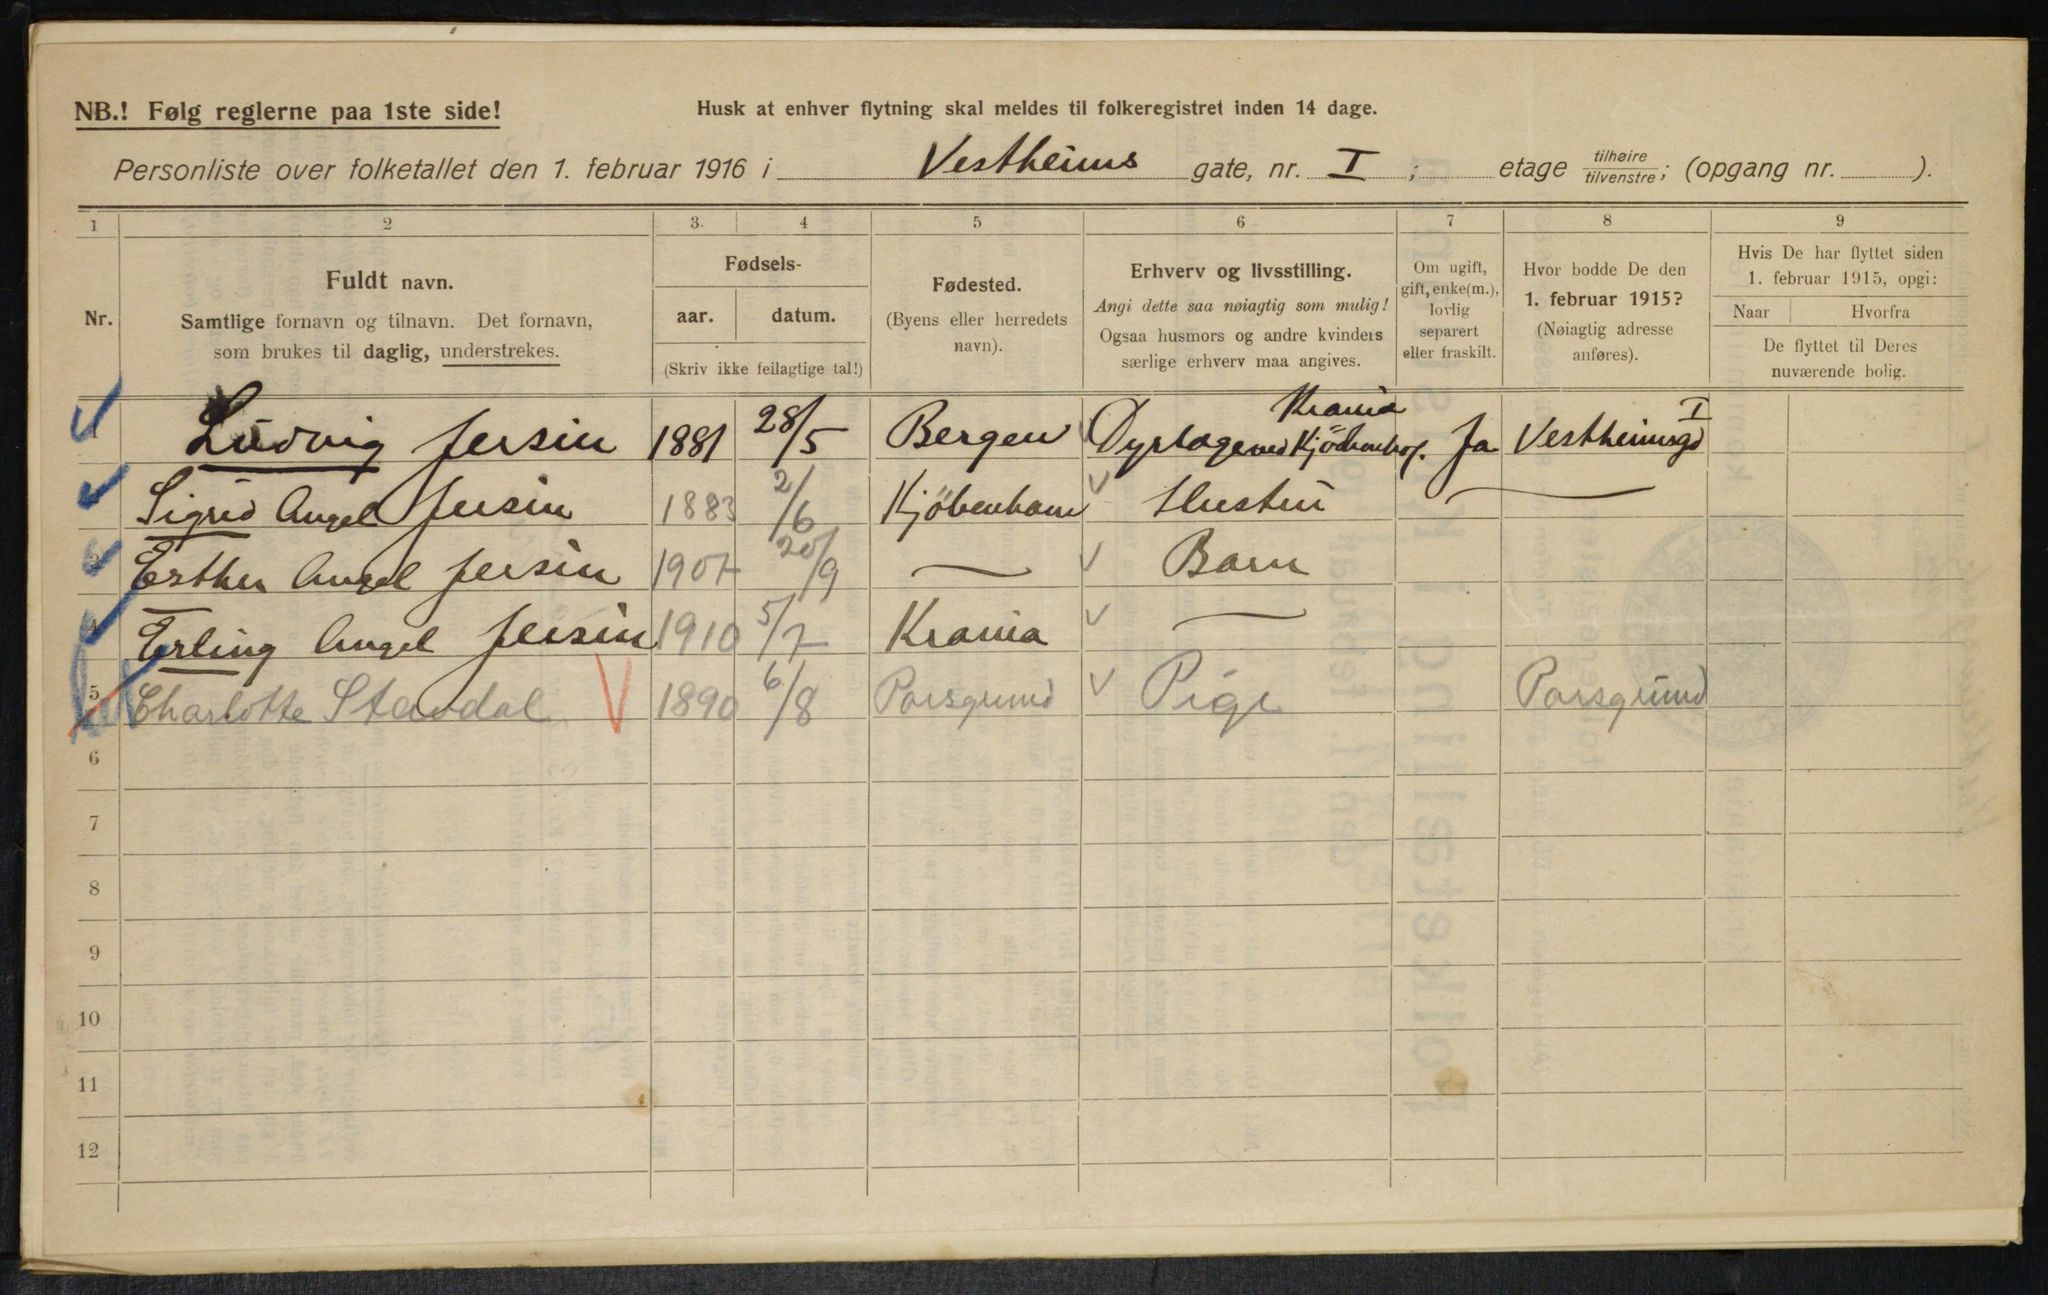 NB.! Følg reglerne paa 1ste side!
Husk at enhver flytning skal meldes til folkeregistret inden 14 dage.
Personliste over folketallet den 1. februar 1916 i Vestheims gate, nr. I ; etage tilhøire/tilvenstre; (opgang nr. ).
1 2 3. 4 5 6 7 8 9
Nr.
Fuldt navn.
Samtlige fornavn og tilnavn. Det fornavn,
som brukes til daglig, understrekes.
Fødsels-
aar. datum.
(Skriv ikke feilagtige tal!)
Fødested.
(Byens eller herredets
navn).
Erhverv og livsstilling.
Angi dette saa nøiagtig som mulig!
Ogsaa husmors og andre kvinders
særlige erhverv maa angives.
Om ugift,
gift, enke(m.),
lovlig
separert
eller fraskilt.
Hvor bodde De den
1. februar 1915?
(Nøiagtig adresse
anføres).
Hvis De har flyttet siden
1. februar 1915, opgi:
Naar Hvorfra
De flyttet til Deres
nuværende bolig.
1 Ludvig Jersin 1881 28/5 Bergen Dyrlæge ved Krania Ja Vestheimsgd I
Sigrid Angel Jersin 1883 2/6 Kjöbenhavn Hustru —
3 Esther Angel Jersin 1907 20/9 — Barn
4 Erling Angel Jersin 1910 5/7 Krania —
5 Charlotte Stavdal 1890 6/8 Porsgrund Pige Porsgrund
6
7
8
9
10
11
12